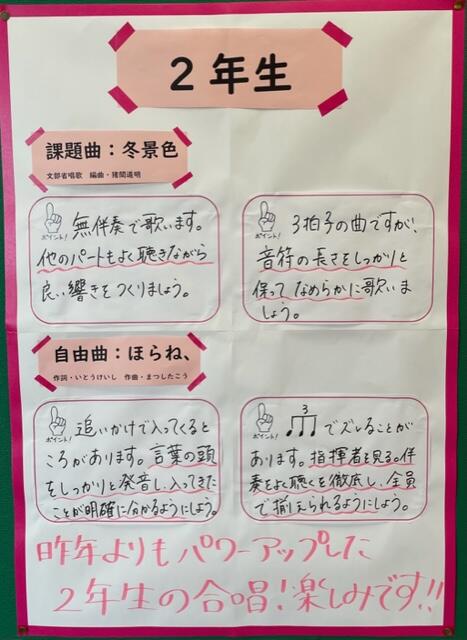 2年生
課題曲：冬景色
文部省唱歌　編曲・猪間道明
ポイント!
無伴奏で歌います。
他のパートもよく聴きながら
良い響きをつくりましょう。
ポイント!
3拍子の曲ですが、
音符の長さをしっかりと
保ってなめらかに歌いま
しょう。
自由曲：ほらね、
作詞・いとうけいし　作曲・まつしたこう
ポイント!
追いかけで入ってくると
ころがあります。言葉の頭
をしっかりと発音し、入ってきた
ことが明確に分かるようにしよう。
ポイント!
3
でズレることが
あります。指揮者を見る。伴
奏をよく聴くを徹底し、全員
で揃えられるようにしよう。
昨年よりもパワーアップした
2年生の合唱!楽しみです!!